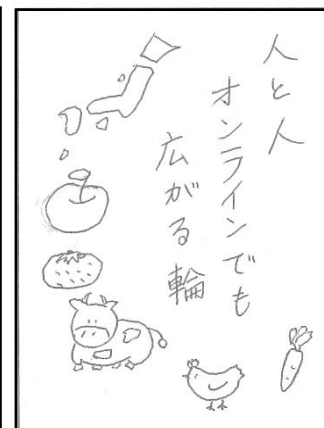 人と人
オンラインでも
広がる輪